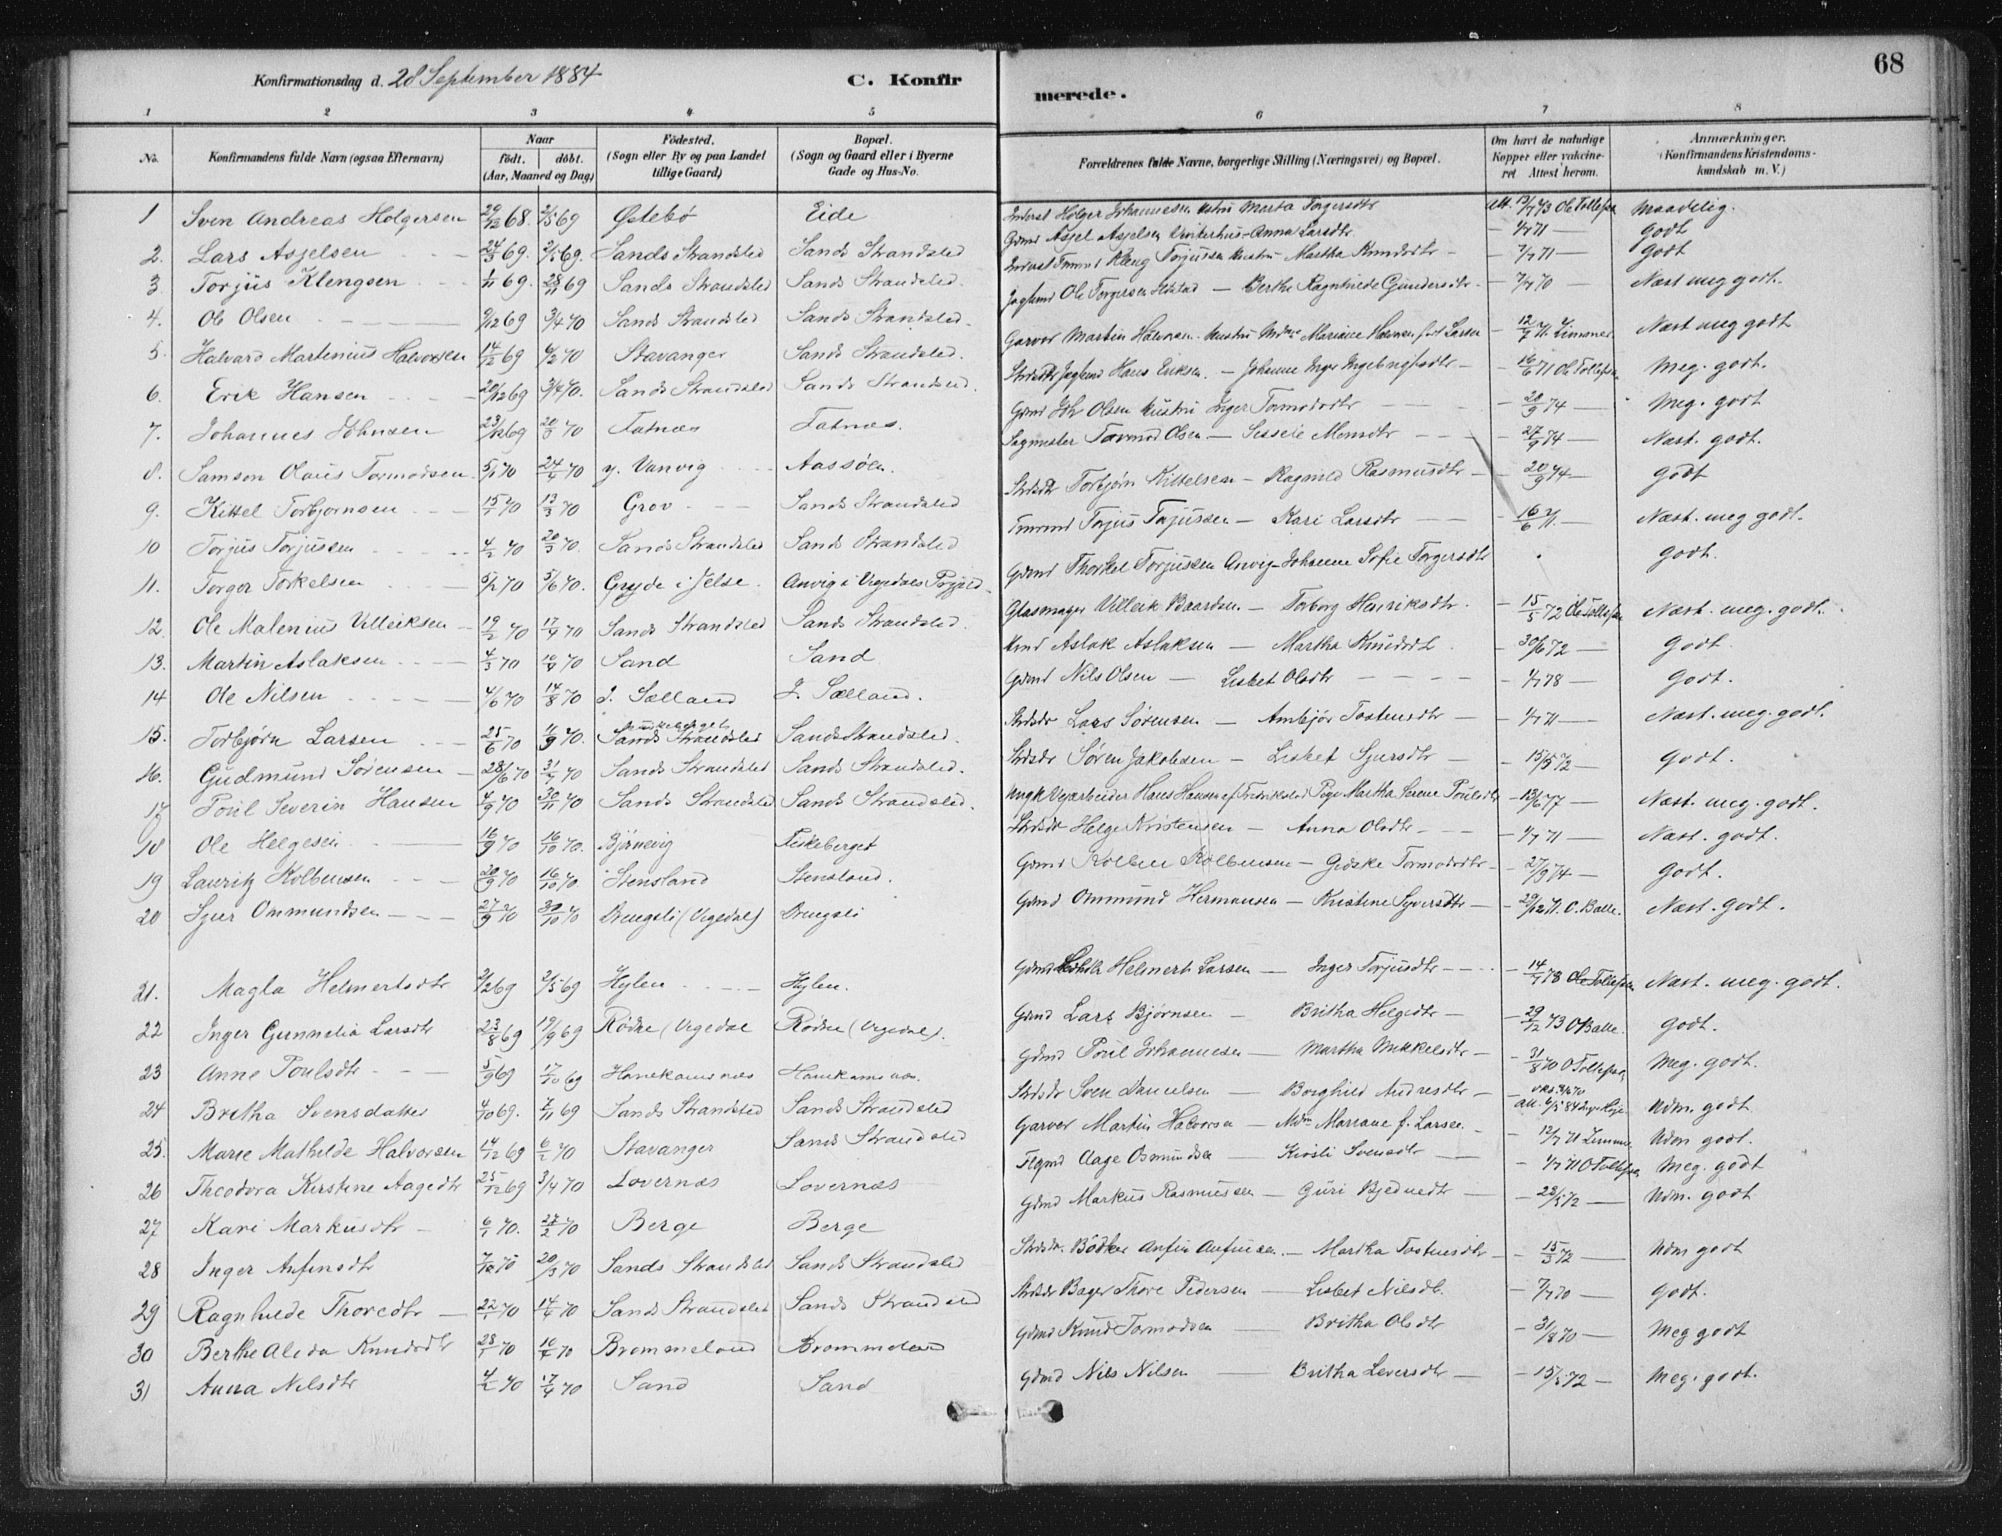 68
Konfirmationsdag d. 28 September 1884 C. Konfirmerede.
1 2 3 4 5 6 7 8
No. Konfirmandens fulde Navn (ogsaa Efternavn) Naar født. døbt. (Aar, Maaned og Dag) Fødested. (Sogn eller By og paa Landet tillige Gaard) Bopæl. (Sogn og Gaard eller i Byerne Gade og Hus-No. Forældrenes fulde Navne, borgerlige Stilling (Næringsvei) og Bopæl. Om havt de naturlige Kopper eller vakcineret Attest herom. Anmærkninger. (Konfirmandens Kristendomskundskab m. V.)
1 Sven Andreas Holgersen 29/12 68. 2/5 69 Østebø Eide Holger Johannesen Hustru Marta Torgersdtr att. 13/7 73 Ole Tollefsen Maadelig.
2. Lars Asjelsen 24/3 69. 2/5 69. Sands Strandsted Sands Strandsted Gdmd Asjel Asjelsen Anna Larsdtr. 1/7 71 Godt
3 Torjus Klengsen 1/11 69. 28/11 69 Sands Strandsted Sands Strandsted. Kleng Torjussen Hustru Martha Knudsdtr 7/7 71 Godt
4. Ole Olsen 9/12 69 3/4 70 Sands Strandsted Sands Strandsted. Ole Torgersen Berthe Ragnhilde Gundersdtr. 7/7 70 Næst meg godt.
5. Halvard Martinius Halvorsen 14/12 69 6/2 70 Stavanger Sands Strandsted. Garver Martin Halvorsen Hustru Mariane Larsen 12/7 71 Zimmer Næst meg godt
6. Erik Hansen 20/12 69 3/4 70. Sands Strandsted Sands Strandsted. Hans Eriksen. Johanne Inger Ingebrigtsdtr 16/6 71 Ole Tollefsen Meg. godt.
7. Johannes Johnsen 23/12 69 20/3 70 Fatnæs Fatnæs. Gdmd Joh Olsen Hustru Inger Tormodsdtr 20/9 74 Meg. godt
8. Samson Olaus Tormodsen 5/1 70 24/4 70 y. Vanvig Aassølen. Sagmester Tormod Olsen Sissele Monsdtr 27/9 74 Næst. godt.
9. Kittel Torbjørnsen 15/1 70 13/3 70 Grov Sands Strandsted Strdsdr Torbjørn Kittelsen Ragnild Rasmusdtr 20/9 74 Godt
10 Torjus Torjussen 4/2 70 20/3 70. Sands Strandsted Sands Strandsted Tømmd Torjus Torjussen Kari Larsdtr 16/6 71. Næst. meg godt.
11. Torger Torkelsen 5/2 70 5/6 70. Gryde i Jelse Anvig i Vigedals Gdmd Thorkel Torjussen Anvig Johanne Sofie Torgersdtr Godt.
12. Ole Malenius Villeiksen 19/2 70 17/4 70 Sands Strandsted Sands Strandsted. Glasmager Villeik Baardsen Torborg Henriksdtr. 15/5 72 Ole Tollefsen Næst. meg. godt.
13. Martin Aslaksen 4/3 70 10/4 70 Sand Sand Aslak Aslaksen Martha Knudsdt. 30/6 72 Godt.
14 Ole Nilsen 4/6 70 14/8 70 J. Sælland J. Sælland. Gdmd Nils Olsen Lisbet Olsdtr 1/7 78 Godt.
15. Torbjørn Larsen 25/6 70 4/9 70. Sands Strandsted Sands Strandsted. Strdsdr Lars Sørensen Ambjør Tostensdtr 1/7 71 Næst. meg. godt.
16. Gudmund Sørensen 28/6 70 31/7 70 Sands Strandsted Sands Strandsted. Strdsdr Søren Jakobsen Lisbet Sjursdtr 15/5 72 Godt.
17 Poul Severin Hansen 4/9 70 30/11 70 Sands Strandsted Sands Strandsted. Hans Hansen Martha Serene Poulsdtr 13/6 77 Næst. meg. godt.
18 Ole Helgesen 16/9 70 16/10 70. Bjørnevig Fiskeberget Strdsdr Helge Kristensen Anna Olsdtr 1/7 71 Næst. godt.
19 Lauritz Kolbensen 20/9 70 16/10 70. Stensland Stensland. Gdmd Kolben Kolbensen Gidske Tormodsdtr 27/9 74 Godt.
20 Sjur Ommundsen 27/9 70 30/10 70 Drengsli (Vigedal) Drengsli Gdmd Ommund Hermansen Kristine Syversdtr 29/12 71. O. Balle. Næst. Godt.
21. Magla Helmertsdtr 2/2 69 2/5 69 Hylen Hylen. Gdmd Helmert Larsen Inger Torjusdtr 14/7 78 Ole Tollefsen Næst. meg. godt.
22 Inger Gunnelia Larsdtr 23/8 69 19/9 69 Rødne (Vigedal Rødne (Vigedal). Gdmd Lars Bjørnsen Britha Helgesdtr 29/12 73 O Balle. Godt.
23 Anne Poulsdtr 5/9 69 17/10 69 Hanekamnæs Hanekamnæs Gdmd Poul Johannesen Martha Mikkelsdtr 31/8 70 O Tollefsen Meg. godt.
24 Britha Svensdatter 4/10 69. 7/11 69 Sands Strandsted Sands Strandsted Strdsdr Sven Danielsen Borghild Andresdtr Udm. godt
25. Marie Mathilde Halvorsen 14/12 69 6/2 70 Stavanger Sands Strandsted Garver Martin Halvorsen Mariane f. Larsen 12/7 71 Zimmer Udm godt.
26 Theodora Kirstine Aagedtr 25/12 69 3/4 70 Lovernæs Lovernæs Aage Osmundsen Kirsti Svensdtr 1/7 71 O Tollefsen Meg. godt
27 Kari Markusdtr 6/1 70. 27/2 70 Berge Berge Gdmd Markus Rasmussen Guri Bjednedtr 28/5 72 Udm. godt
28 Inger Anfinsdtr 7/12 70 20/3 70 Sands Strandsted Sands Strandsted Strdsdr. Bødker Anfin Anfinsen. Martha Tostensdtr 15/3 72 Udm godt
29 Ragnhilde Thoredtr 22/1 70 14/4 70 Sands Strandsted Sands Strandsted Strdsdr Bager Thore Pedersen Lisbet Nilsdt. 7/7 70 Godt.
30 Berthe Alida Knudsdtr 28/1 70 10/4 70 Brommeland Brommeland Gdmd Knud Tormodsen Britha Olsdtr 31/8 70 Meg godt
31 Anna Nilsdtr 4/2 70 17/4 70 Sand Sand Gdmd Nils Nilsen Britha Leversdtr 15/5 72 Meg. godt.